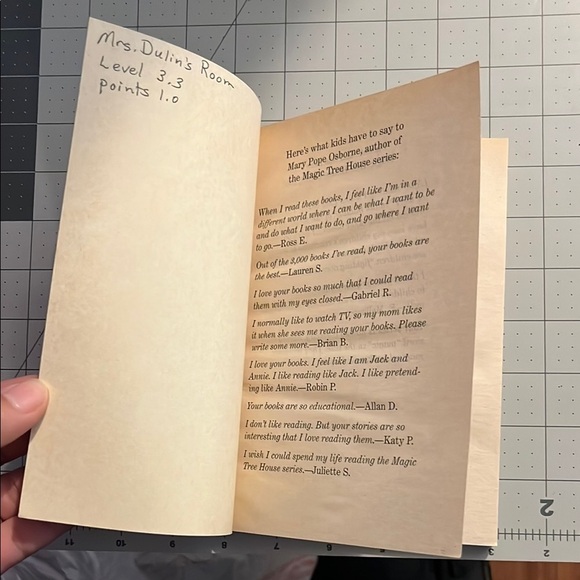 Mrs. Dulin's Room
Level 3.3
Points 1.0
Here's what kids have to say to
Mary Pope Osborne, author of
the Magic Tree House series:
When I read these books, I feel like I'm in a
different world where I can be what I want to be
and do what I want to do, and go where I want
to go.—Ross E.
Out of the 3,000 books I've read, your books are
the best.—Lauren S.
I love your books so much that I could read
them with my eyes closed.—Gabriel R.
I normally like to watch TV, so my mom likes
it when she sees me reading your books. Please
write some more.—Brian B.
I love your books. I feel like I am Jack and
Annie. I like reading like Jack. I like pretend-
ing like Annie.—Robin P.
Your books are so educational.—Allan D.
I don't like reading. But your stories are so
interesting that I love reading them.—Katy P.
I wish I could spend my life reading the Magic
Tree House series.—Juliette S.
2
11 10 9 8 7 6 3 2